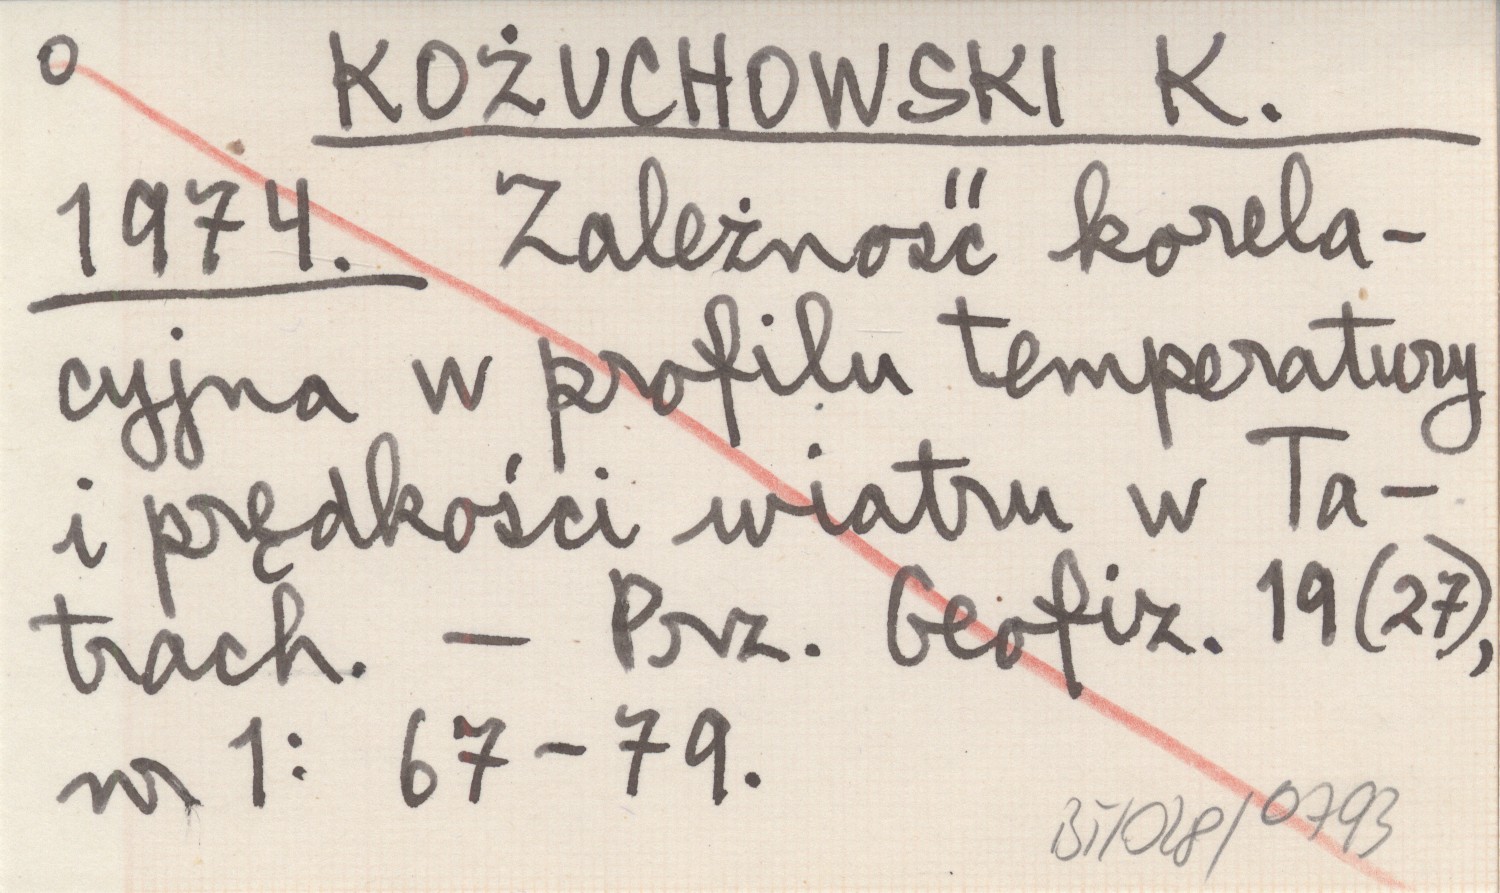 o KOŻUCHOWSKI K.
1974. Zależność korela-
cyjna w profilu temperatury
i prędkości wiatru w Ta-
trach. — Prz. Geofiz. 19 (27),
nr 1: 67-79.
BT/028/0793